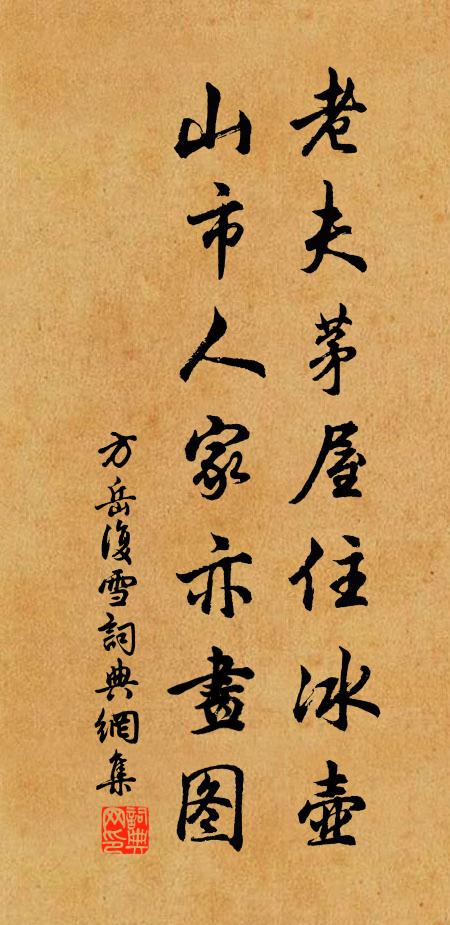 老夫茅屋住冰壶
山市人家亦畫图
方岳復雪詞典網集
詞典网印